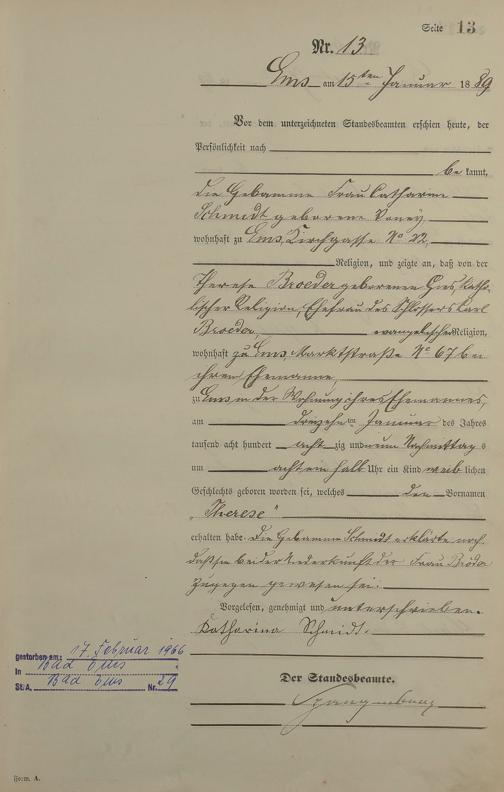 Seite 13
Nr. 13
Ems am 15ten Januar 1889
Vor dem unterzeichneten Standesbeamten erschien heute, der
Persönlichkeit nach
be kannt,
die Hebamme Frau Catharine
Schmidt geborene
wohnhaft zu Ems, Kirchgasse No 22,
Religion, und zeigte an, daß von der
Therese Broeder geborenen Gies katho-
lischer Religion, Ehefrau des Schlossers Carl
Broeder, evangelischer Religion,
wohnhaft zu Ems, Marktstraße No 67 bei
ihrem Ehemanne,
zu Ems in der Wohnung ihres Ehemannes,
am dreizehnten Januar des Jahres
tausend acht hundert acht zig und neun Nachmittag s
um acht ein halb Uhr ein Kind weib lichen
Geschlechts geboren worden sei, welches den Vornamen
„Therese"
erhalten habe. Die Hebamme Schmidt erklärte noch,
daß sie bei der Niederkunft der Frau Bröder
zugegen gewesen sei.
Vorgelesen, genehmigt und unterschrieben.
Katharina Schmidt.
Der Standesbeamte.
gestorben am: 17. Februar 1966
in Bad Ems
St.A. Bad Ems Nr. 29
Form. A.